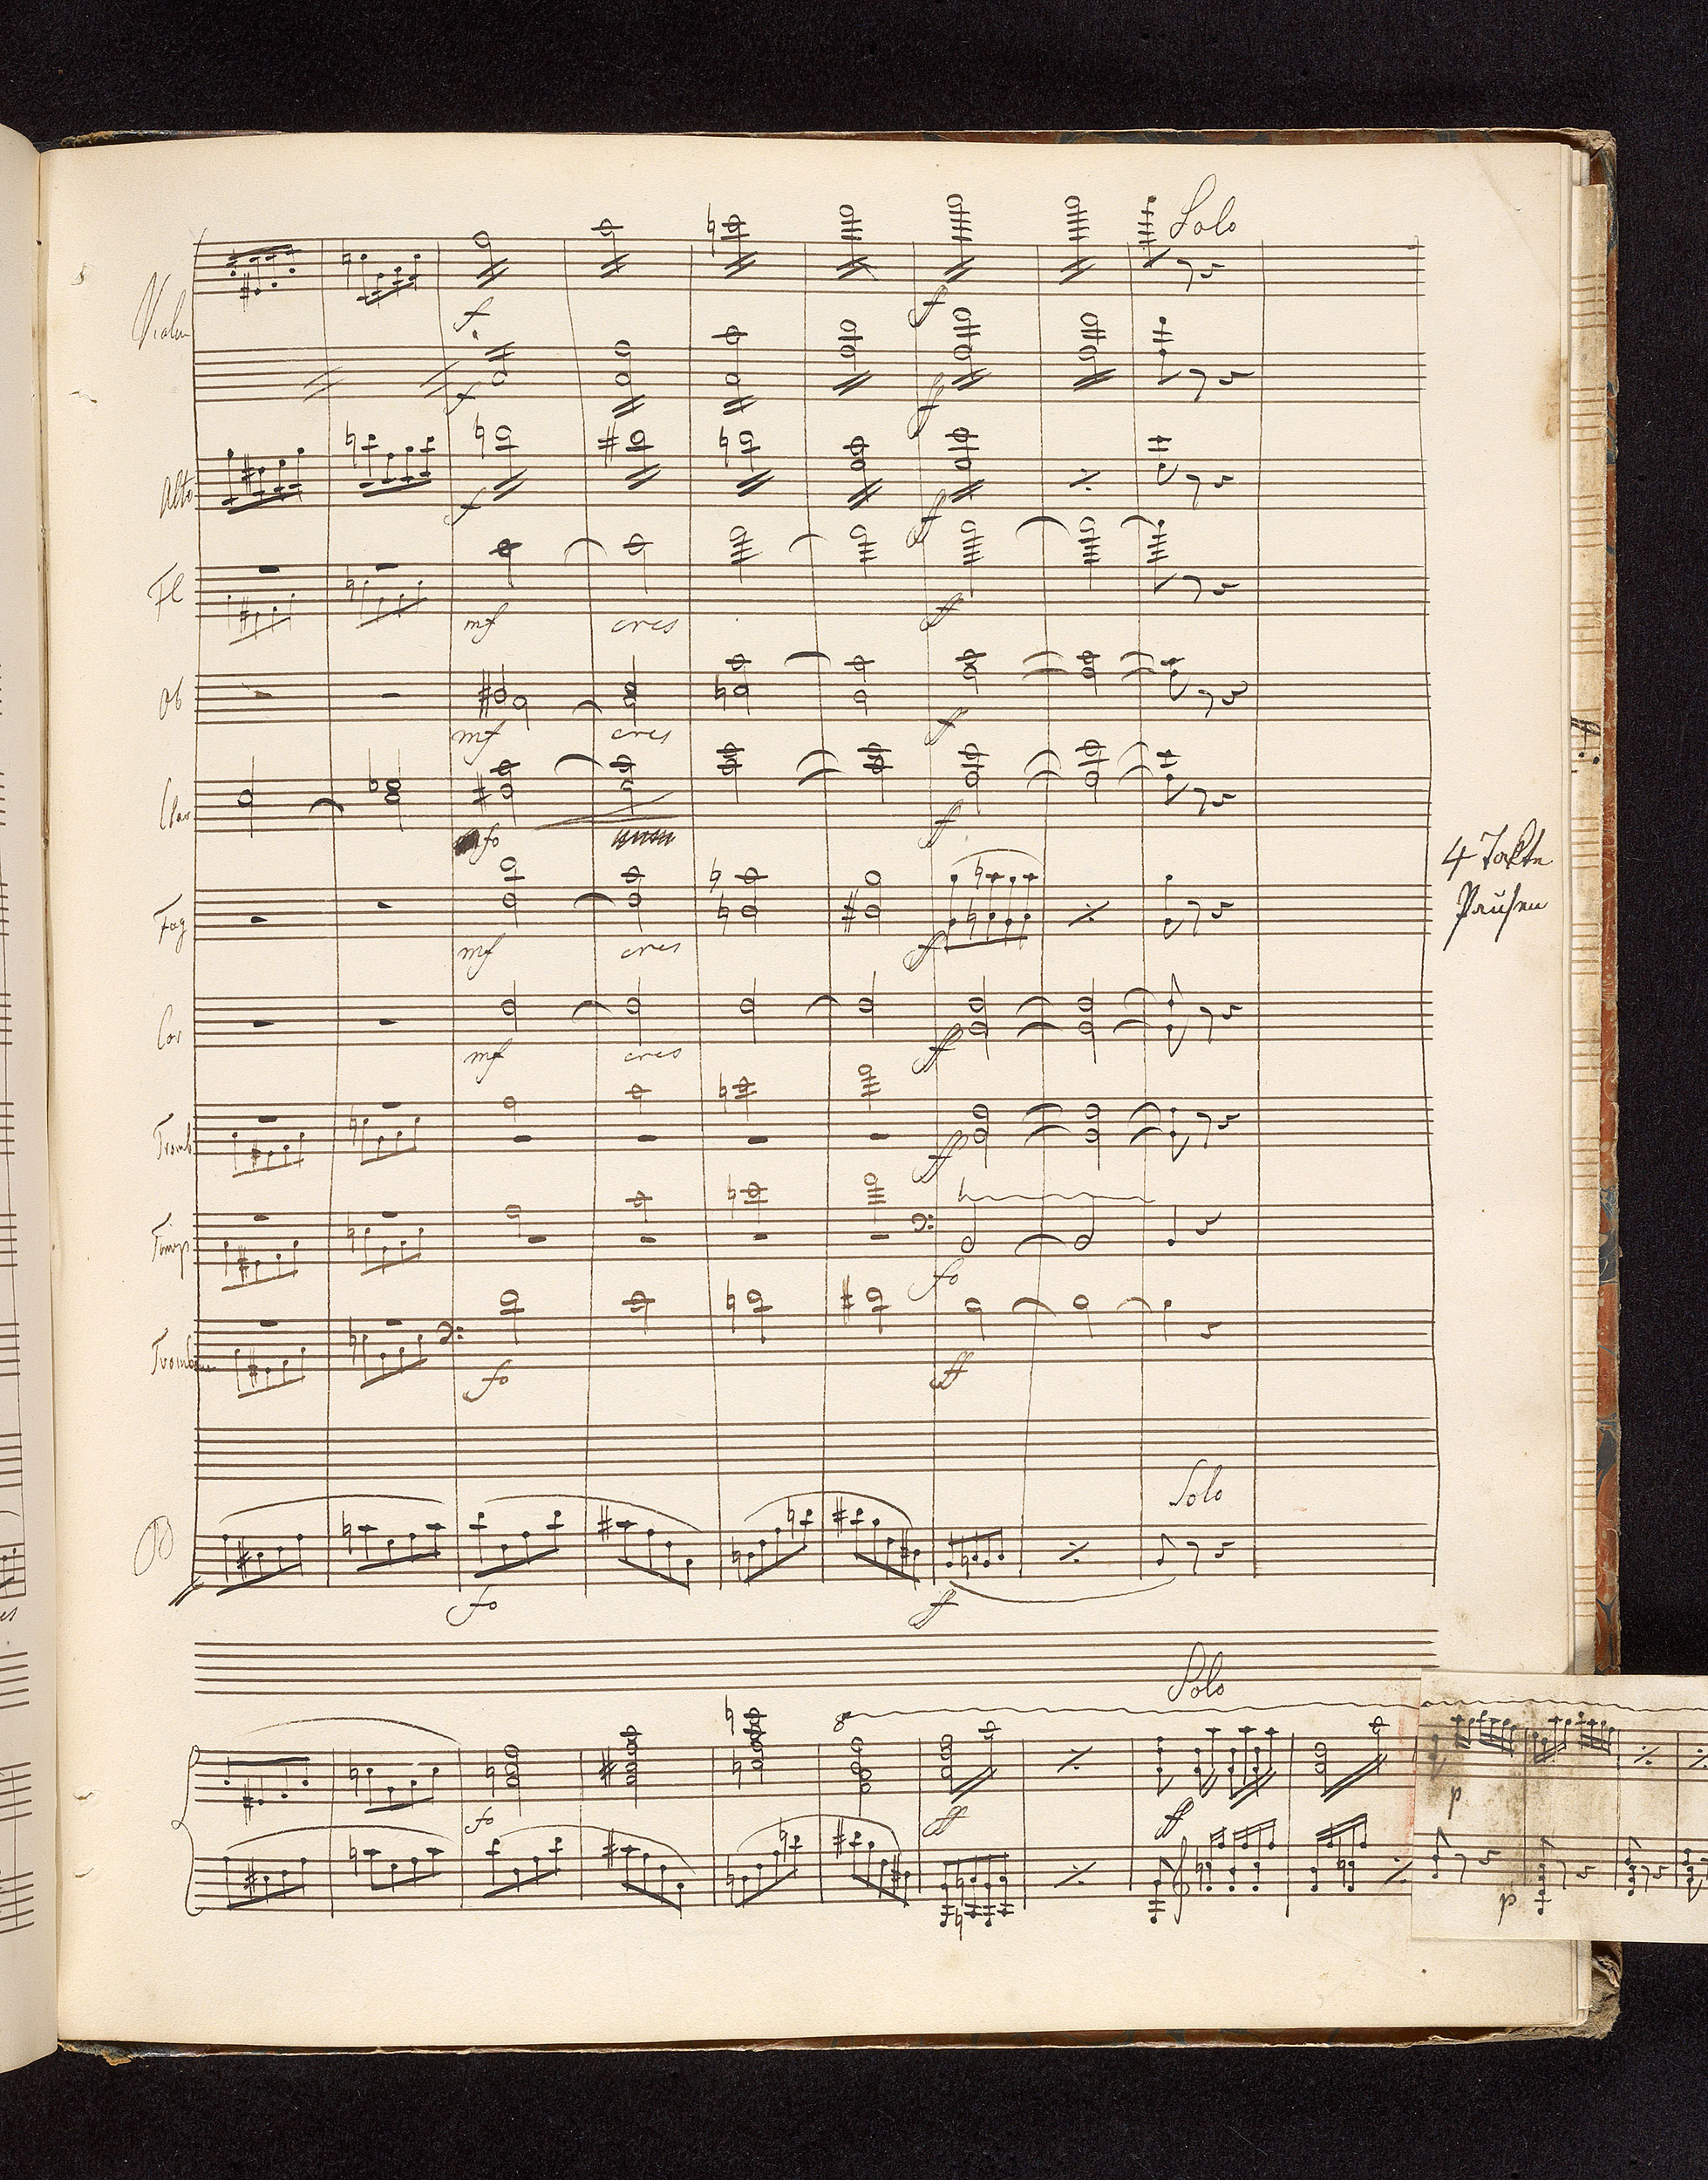 Solo
Violin
f
f
f
ff
Alto
f
ff
Fl
mf cres ff
Ob
mf cres f
Clar
fo f
4 Takte
Pausen
Fag
mf cres ff
Cor
mf cres ff
Tromb
ff
Timp
fo
Trombone
fo ff
Solo
B
fo ff
Solo
8
fo ff ff p
p